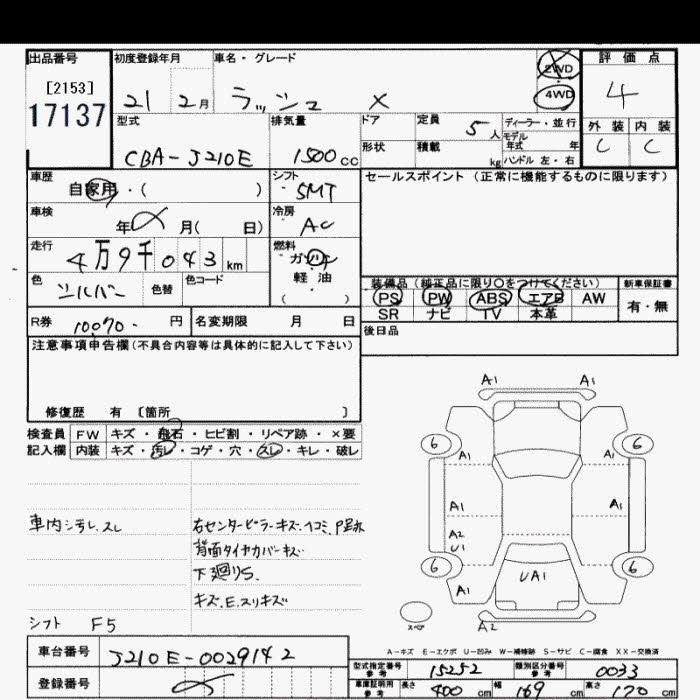 出品番号 初度登録年月 車名・グレード 2WD 評価点
[2153] 21 2月 ラッシュ X 4WD 4
17137 型式 排気量 ドア 定員 5人 ディーラー・並行 外装 内装
モデル年式 年 C C
CBA-J210E 1500cc 形状 積載 kg ハンドル 左・右
車歴 シフト セールスポイント(正常に機能するものに限ります)
自家用・( ) 5MT
車検 冷房
年 月( 日) AC
走行 燃料
4万9千043km ガソリン
色 色替 色コード 軽油
シルバー ( )
装備品(純正品に限り○をつけてください) 新車保証書
PS PW ABS エアB AW 有・無
SR ナビ TV 本革
R券 10070.円 名変期限 月 日 後日品
注意事項申告欄(不具合内容等は具体的に記入して下さい)
修復歴 有 [箇所 ]
検査員 FW キズ・飛石・ヒビ割・リペア跡・×要
記入欄 内装 キズ・汚レ・コゲ・穴・スレ・キレ・破レ
A1 A1
6 6
A1 A1
A1 A1
A2
U1
6 6
UA1
A1 A1
スペア A2
車内シ汚レ.スレ 右センターピラーキズ.ヘコミ.P跡
背面タイヤカバーキズ
下廻りS.
キズ.E.スリキズ
シフト F5
A-キズ E-エクボ U-凹み W-補修跡 S-サビ C-腐食 XX-交換済
車台番号 J210E-0029142
登録番号
型式指定番号 参考 15252 類別区分番号 参考 0033
車庫証明用 参考 長さ 400cm 幅 169cm 高さ 170cm